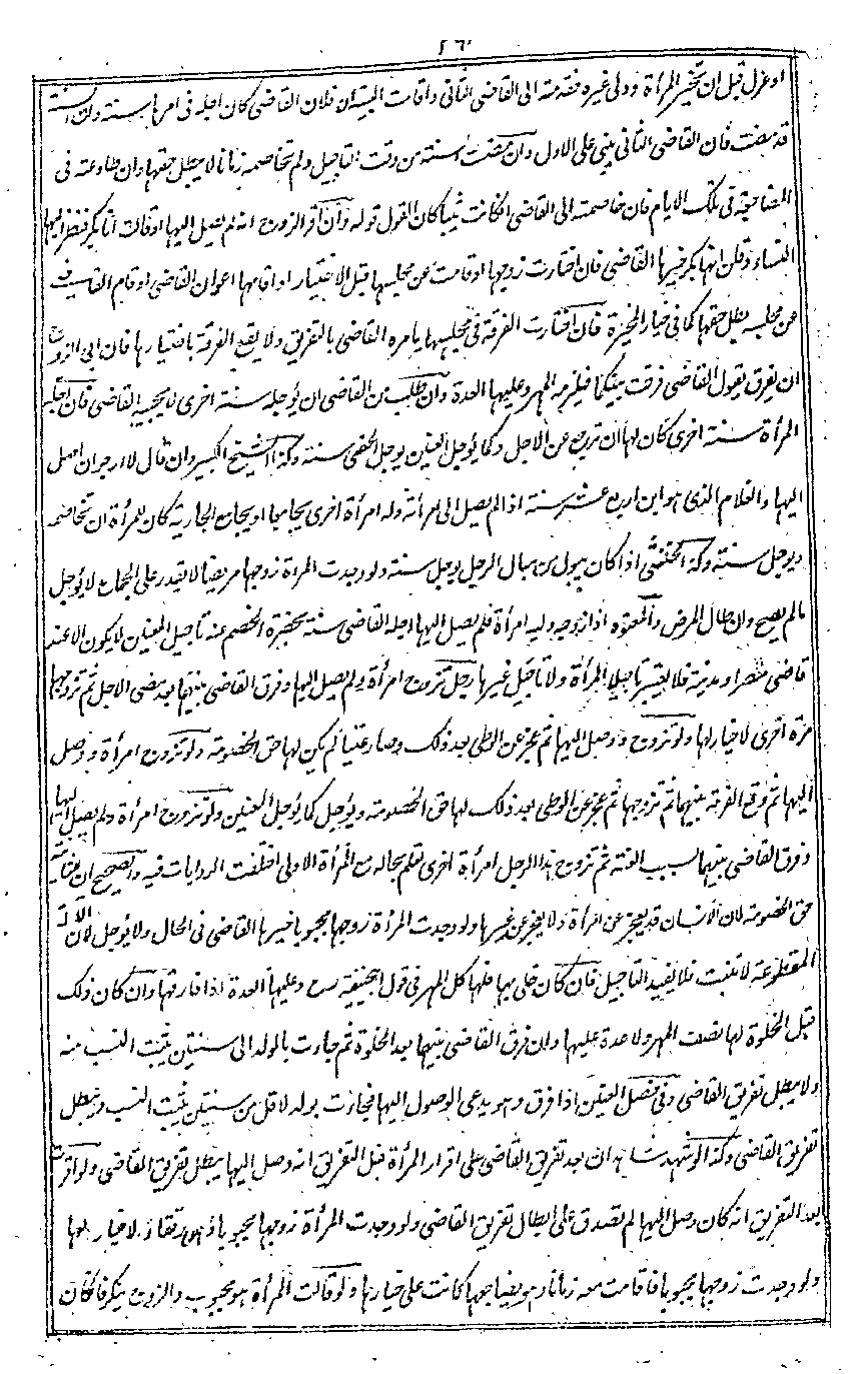 ٢٦٠
او عزل قبل ان تخير المرأة وولى غيره فقدمته الى القاضى الثانى واقامت البينة ان فلان القاضى كان اجله فى امرها سنة وان السنة
قد مضت فان القاضى الثانى يبنى على الاول وان مضت السنة من وقت التاجيل ولم تخاصمه زمانا لا يبطل حقها وان طاوعته فى
المضاجعة فى تلك الايام فان خاصمته الى القاضى ان كانت ثيبا كان القول قوله وان اقر الزوج انه لم يصل اليها او قالت انا بكر فنظر اليها
النساء وقلن انها بكر خيرها القاضى فان اختارت زوجها او قامت عن مجلسها قبل الاختيار او اقامها اعوان القاضى او قام القاضى
عن مجلسه يبطل حقها كما فى خيار المخيرة فان اختارت الفرقة فى مجلسها يامره القاضى بالتفريق ولا يقع الفرقة باختيارها فان ابى الزوج
ان يفرق يقول القاضى فرقت بينكما فيلزمه المهر وعليها العدة وان طلب من القاضى ان يؤجله سنة اخرى لا يجيبه القاضى فان اجلته
المرأة سنة اخرى كان لها ان ترجع عن الاجل وكما يؤجل العنين يوجل الخصى سنة وكذا الشيخ الكبير وان قال لا ارجو ان اصل
اليها والغلام الذى هو ابن اربع عشر سنة اذا لم يصل الى امرأته وله امرأة اخرى يجامعها او يجامع الجارية كان للمرأة ان تخاصمه
ويوجل سنة وكذا الخنثى اذا كان يبول من مبال الرجل يوجل سنة ولو وجدت المرأة زوجها مريضا لا يقدر على الجماع لا يؤجل
مالم يصح وان طال المرض والمعتوه اذا زوجه وليه امرأة فلم يصل اليها اجله القاضى سنة بحضرة الخصم عنه تاجيل العنين لا يكون الا عند
قاضى مصر او مدينة فلا يعتبر تاجيل المرأة ولا تاجيل غيرها رجل تزوج امرأة ولم يصل اليها وفرق القاضى بينهما بعد مضى الاجل ثم تزوجها
مرة اخرى لا خيار لها ولو تزوج ووصل اليها ثم عجز عن الوطى بعد ذلك وصار عنينا لم يكن لها حق الخصومة ولو تزوج امرأة ووصل
اليها ثم وقع الفرقة بينهما ثم تزوجها ثم عجز عن الوطى بعد ذلك لها حق الخصومة ويؤجل كما يؤجل العنين ولو تزوج امرأة ولم يصل اليها
وفرق القاضى بينهما بسبب العنة ثم تزوج هذا الرجل امرأة اخرى تعلم بحاله مع المرأة الاولى اختلفت الروايات فيه والصحيح ان للثانية
حق الخصومة لان الانسان قد يعجز عن امرأة ولا يعجز عن غيرها ولو وجدت المرأة زوجها مجبوبا خيرها القاضى فى الحال ولا يؤجل لان الآلة
المقطوعة لا تنبت فلا يفيد التاجيل فان كان خلى بها فلها كل المهر فى قول ابيحنيفة رح وعليها العدة اذا فارقها وان كان ذلك
قبل الخلوة لها نصف المهر ولا عدة عليها وان فرق القاضى بينهما بعد الخلوة ثم جاءت بالولد الى سنتين يثبت النسب منه
ولا يبطل تفريق القاضى وفى فصل العنين اذا فرق وهو يدعى الوصول اليها فجاءت بولد لاقل من سنتين يثبت النسب ويبطل
تفريق القاضى وكذا لو شهد شاهدان بعد تفريق القاضى على اقرار المرأة قبل التفريق انه وصل اليها يبطل تفريق القاضى ولو اقرت
بعد التفريق انه كان وصل اليها لم تصدق على ابطال تفريق القاضى ولو وجدت المرأة زوجها مجبوبا وهى رتقاء لا خيار لها
ولو وجدت زوجها مجبوبا فاقامت معه زمانا وهو يضاجعها كانت على خيارها ولو قالت المرأة هو مجبوب والزوج ينكر فان كان